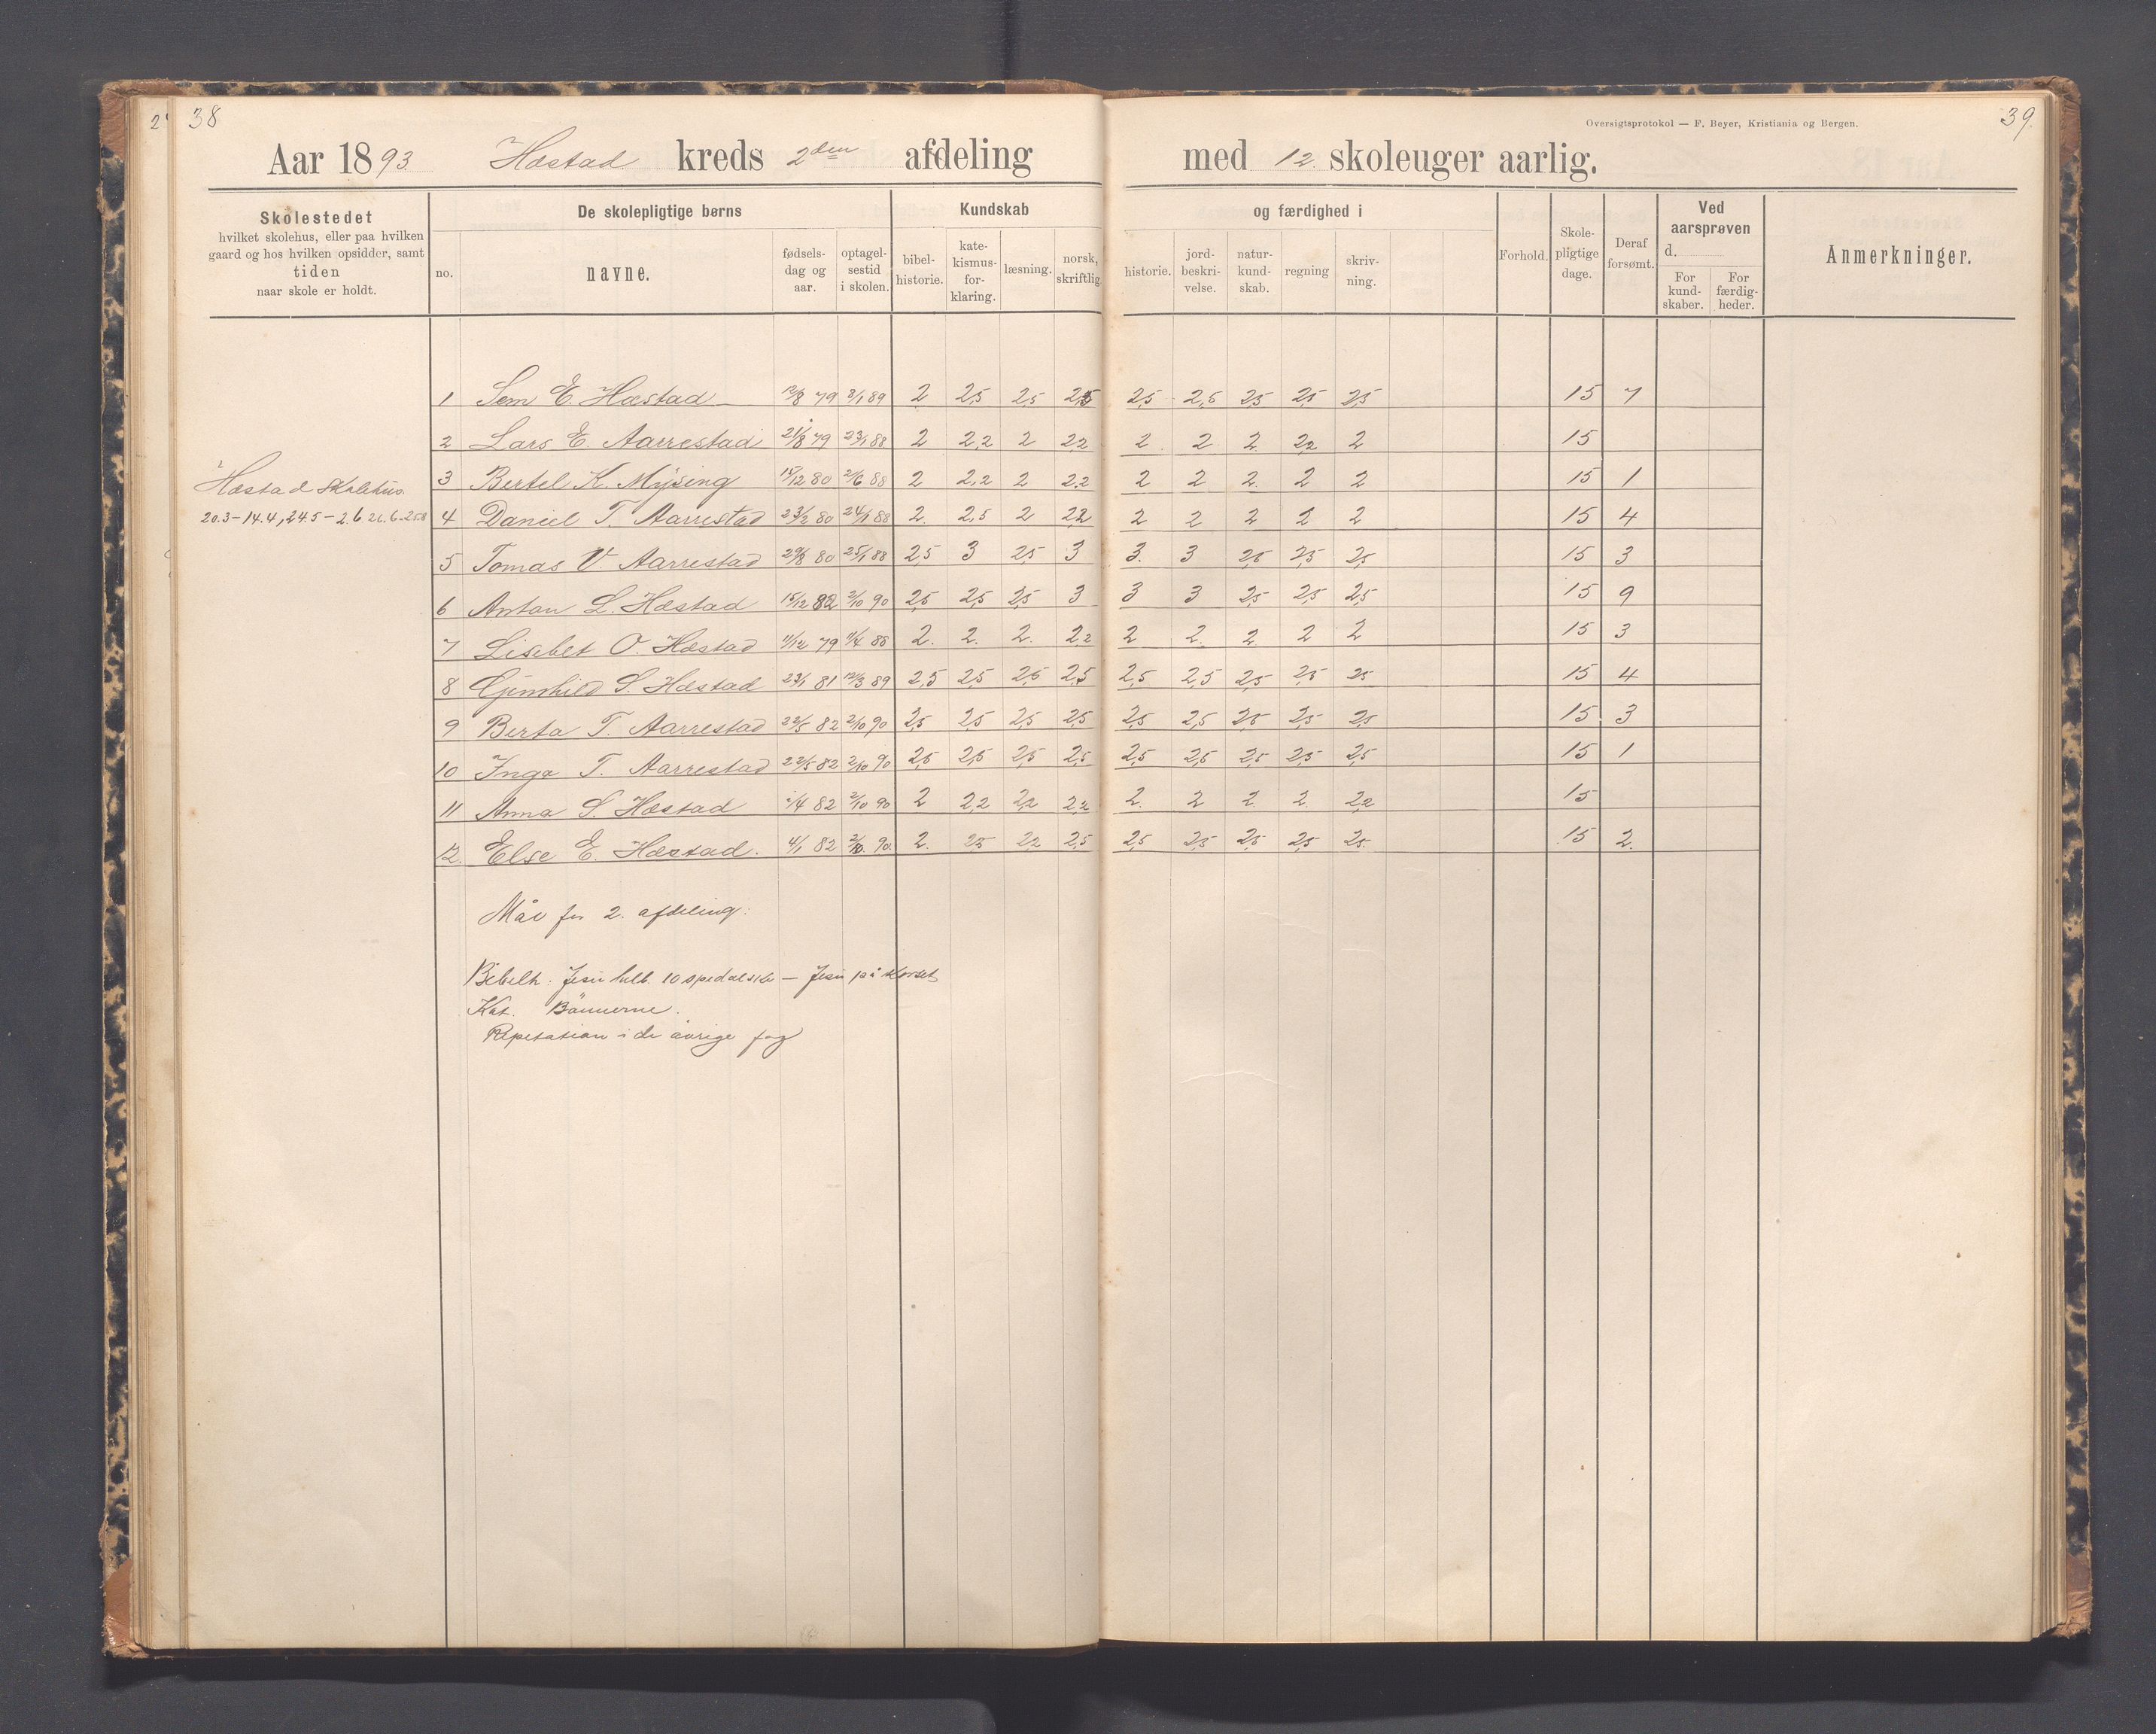 38
39.
Oversigtsprotokol — F. Beyer, Kristiania og Bergen.
Aar 1893. Hæstad kreds 2den afdeling med 12. skoleuger aarlig.
Skolestedet hvilket skolehus, eller paa hvilken gaard og hos hvilken opsidder, samt tiden naar skole er holdt.
De skolepligtige børns
no. navne. fødsels-dag og aar. optagel-sestid i skolen.
Kundskab og færdighed i
bibel-historie. kate-kismus-for-klaring. læsning. norsk, skriftlig. historie. jord-beskri-velse. natur-kund-skab. regning skriv-ning.
Forhold. Skole-pligtige dage. Deraf forsømt.
Ved aarsprøven d.
For kund-skaber. For færdig-heder.
Anmerkninger.
Hæstad Skolehus.
20.3–14.4, 24.5–2.6
1 Sem E. Hæstad 12/8 79 2/1 89 2 2,5 2,5 2,5 2,5 2,5 2,5 2,5 2,5 15 7
2 Lars E. Aarrestad 21/8 79 23/1 88 2 2,2 2 2,2 2 2 2 2,2 2 15
3 Bertel K. Mysing 15/12 80 2/6 88 2 2,2 2 2,2 2 2 2 2 2 15 1
4 Daniel T. Aarrestad 23/2 80 24/1 88 2. 2,5 2 2,2 2 2 2 2 2 15 4
5 Tomas V. Aarrestad 29/8 80 25/1 88 2,5 3 2,5 3 3. 3 2,5 2,5 2,5 15 3
6 Anton L. Hæstad 15/12 82 2/10 90 2,5 2,5 2,5 3 3 3 2,5 2,5 2,5 15 9
7 Lisebet O. Hæstad 11/12 79 11/4 88 2. 2. 2. 2,2 2 2. 2 2 2 15 3
8 Gunhild S. Hæstad 23/1 81 12/3 89 2,5 2,5 2,5 2,5 2,5 2,5 2,5 2,5 2,5 15 4
9 Berta T. Aarrestad 22/5 82 2/10 90 2,5 2,5 2,5 2,5 2,5 2,5 2,5 2,5 2,5 15 3
10 Inga T. Aarrestad 22/5 82 2/10 90 2,5 2,5 2,5 2,5 2,5 2,5 2,5 2,5 2,5 15 1
11 Anna S. Hæstad /4 82 2/10 90 2 2,2 2,2 2,2 2. 2 2 2 2,2 15
12. Else E. Hæstad. 4/1 82 2/10. 90. 2. 2,5 2,2 2,5 2,5 2,5 2,5 2,5 2,5. 15 2.
Mål for 2. afdeling:
Bibelh: Jesu helb. 10 spedalske — Jesu på korset
Kat. Bønnerne.
Repetation i de øvrige fag